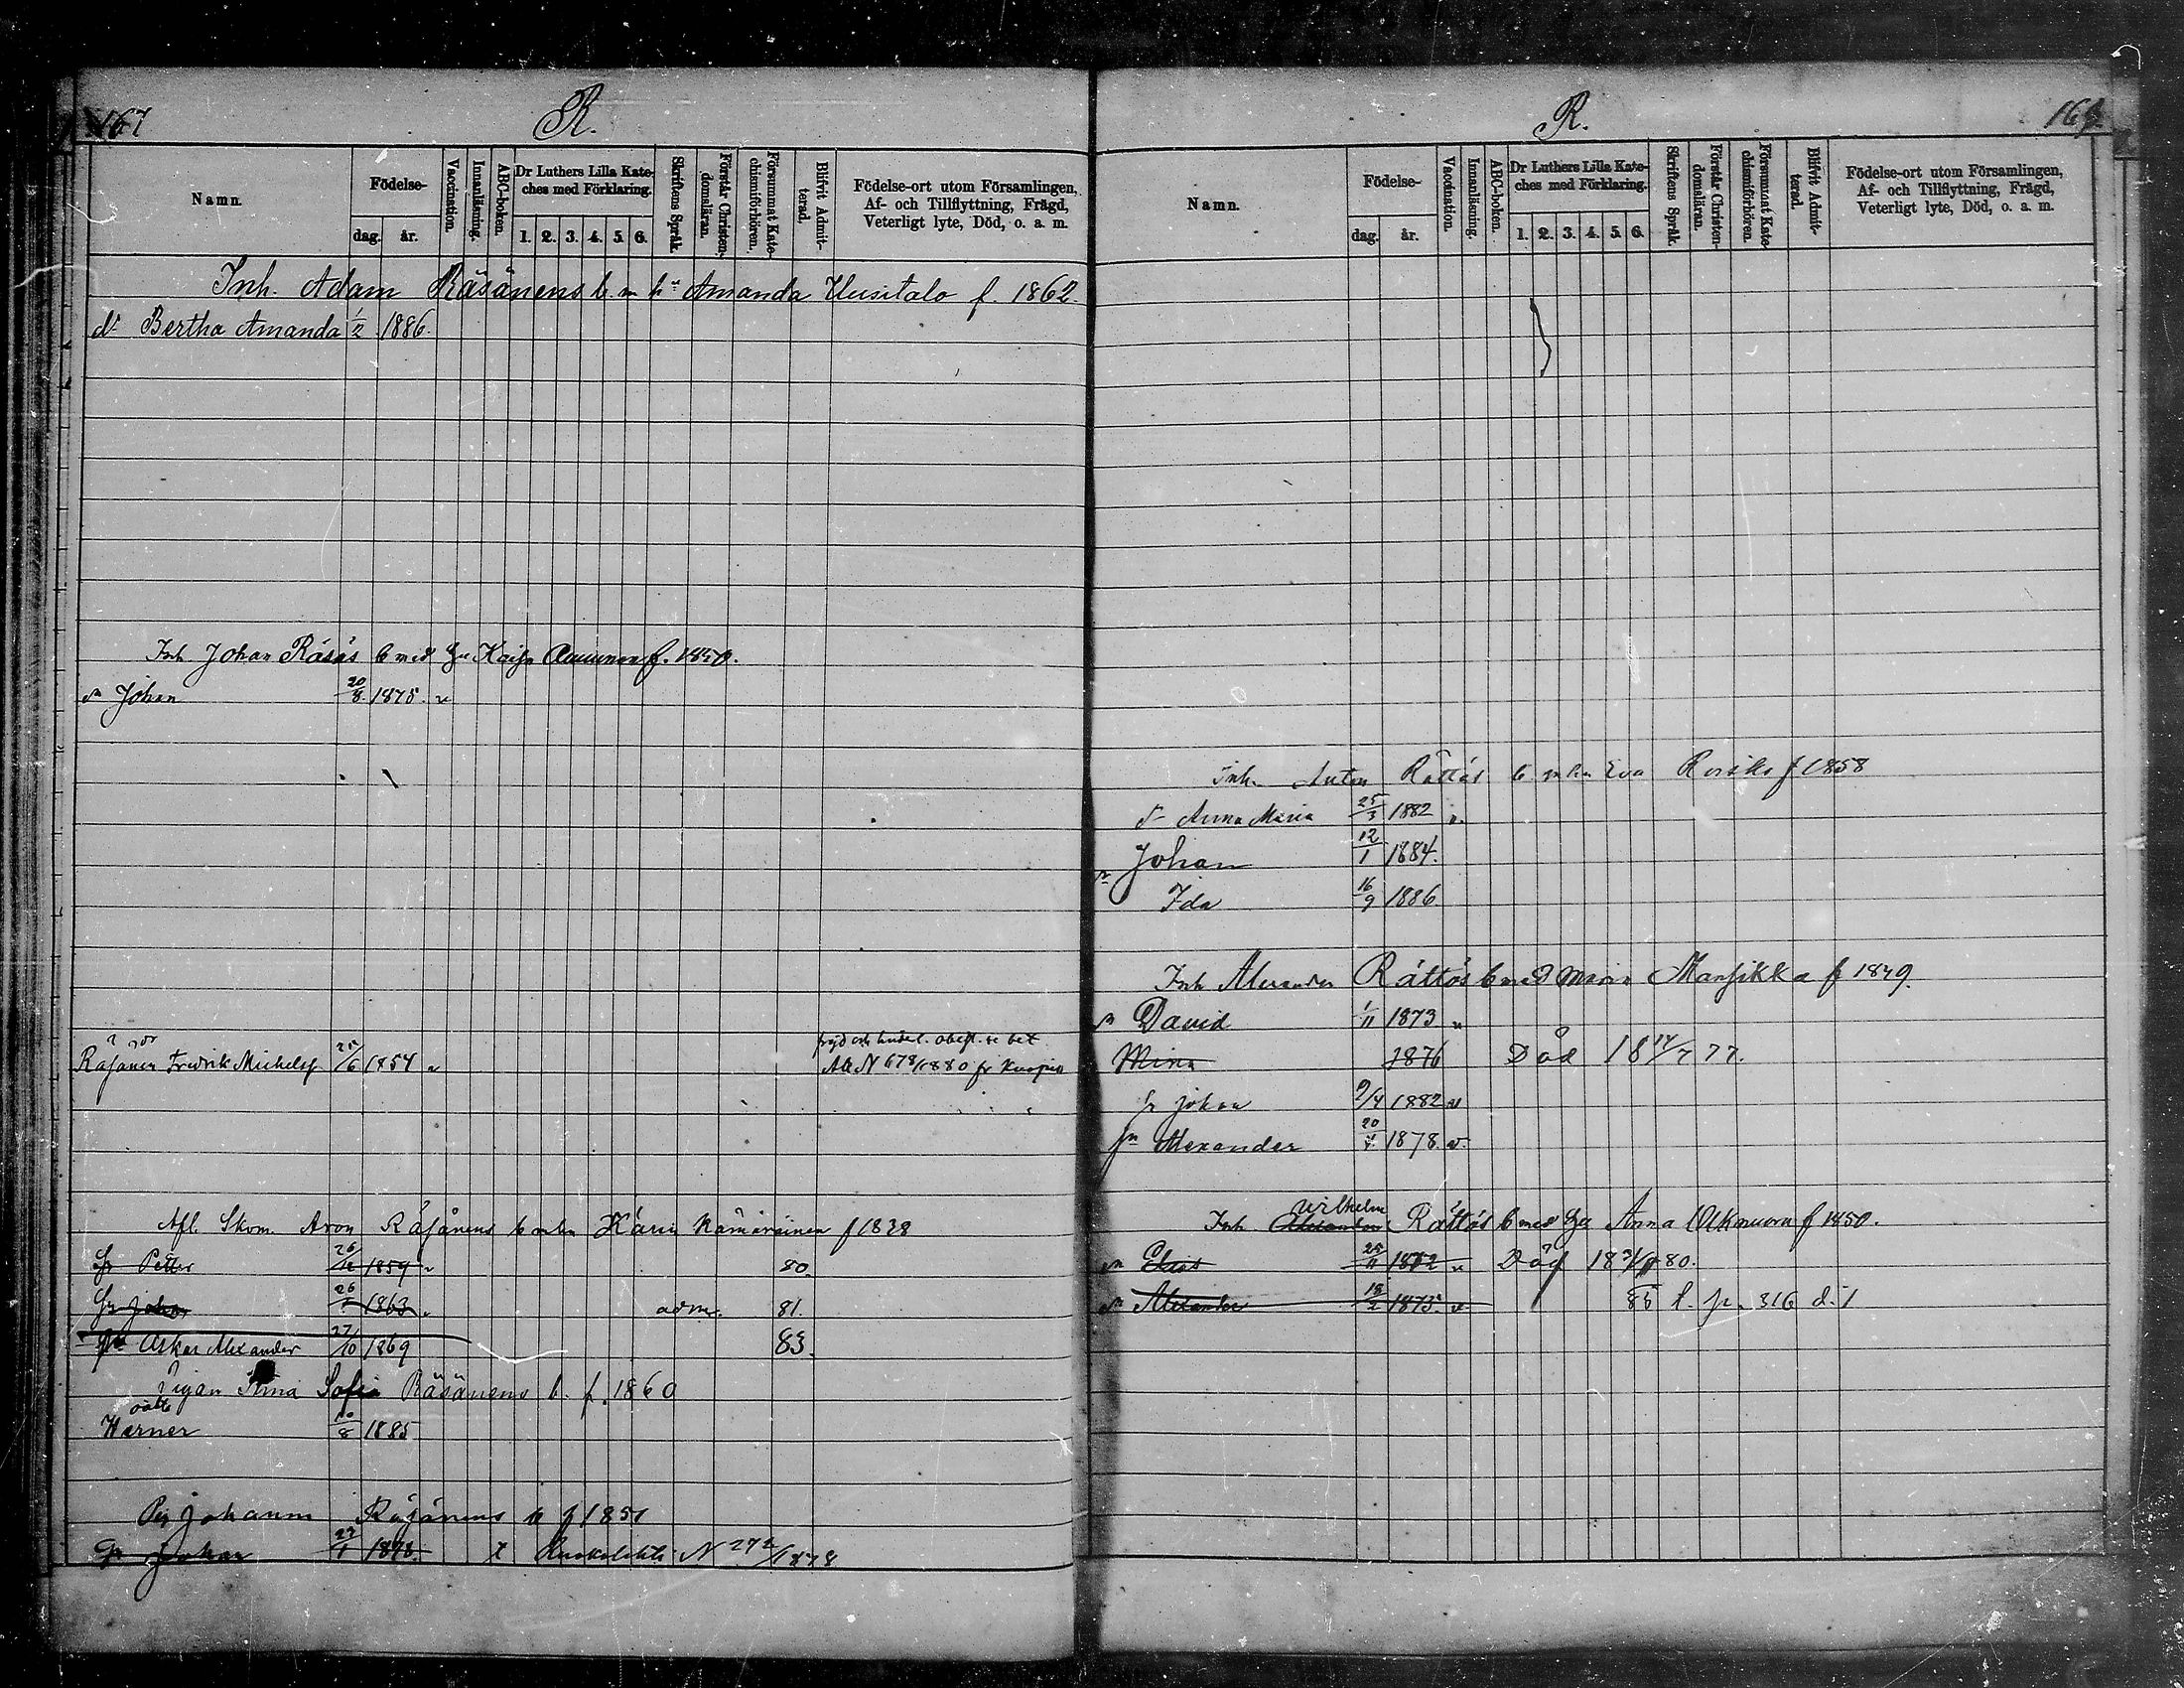 167
R.
Namn.
Födelse-
dag.
år.
Vaccination.
Innanläsning.
ABC-boken.
Dr Luthers Lilla Kate-
ches med Förklaring.
1. 2. 3. 4. 5. 6.
Skriftens Språk.
Förstår Christen-
domsläran.
Försummat Kate-
chismiförhören.
Blifvit Admit-
terad.
Födelse-ort utom Församlingen,
Af- och Tillflyttning, Frägd,
Veterligt lyte, Död, o. a. m.
Inh. Adam Räsänens b. m. h. Amanda Uusitalo f. 1862.
dr Bertha Amanda 1/2 1886.
Inh Johan Räsäs b med Kaisa f. 1850.
sn Johan 20/8 1875. v
Räsänen Fredrik Michelsf 25/6 1854 v
Att N 678/1880 fr Kuopio
Afl. Skom. Aron Räsänens b Karin Kämäräinen f 1838
Petter 26 1859 v 80.
Johan 26 1863 v adm. 81.
Oskar Alexander 27/10 1869 83.
Pigan Sofia Räsänens b. f. 1860
oäkta
Werner 10/8 1885
Pig Johanna Räsänens b f 1851
Johan 1878. Ruskeakti N 272/1878
R.
Namn.
Födelse-
dag.
år.
Vaccination.
Innanläsning.
ABC-boken.
Dr Luthers Lilla Kate-
ches med Förklaring.
1. 2. 3. 4. 5. 6.
Skriftens Språk.
Förstår Christen-
domsläran.
Försummat Kate-
chismiförhören.
Blifvit Admit-
terad.
Födelse-ort utom Församlingen,
Af- och Tillflyttning, Frägd,
Veterligt lyte, Död, o. a. m.
Inh. Anton Rättös b m hu Eva f 1858
dr Anna Maria 25/3 1882 v.
sn Johan 12/1 1884.
Ida 16/9 1886.
Inh Alexander Rättös b med Maria Mansikka f 1849.
sn David 1/11 1873 v
Mina 1876 Död 18 17/7 77.
Johan 9/4 1882 v
Alexander 20 1878 v.
Wilhelm
Inh Alexander Rättös b med Anna f 1850.
sn Elias 25/11 1872 v Död 80.
sn Alexander 13/2 1875. v 85 l. p. 316 d. 1